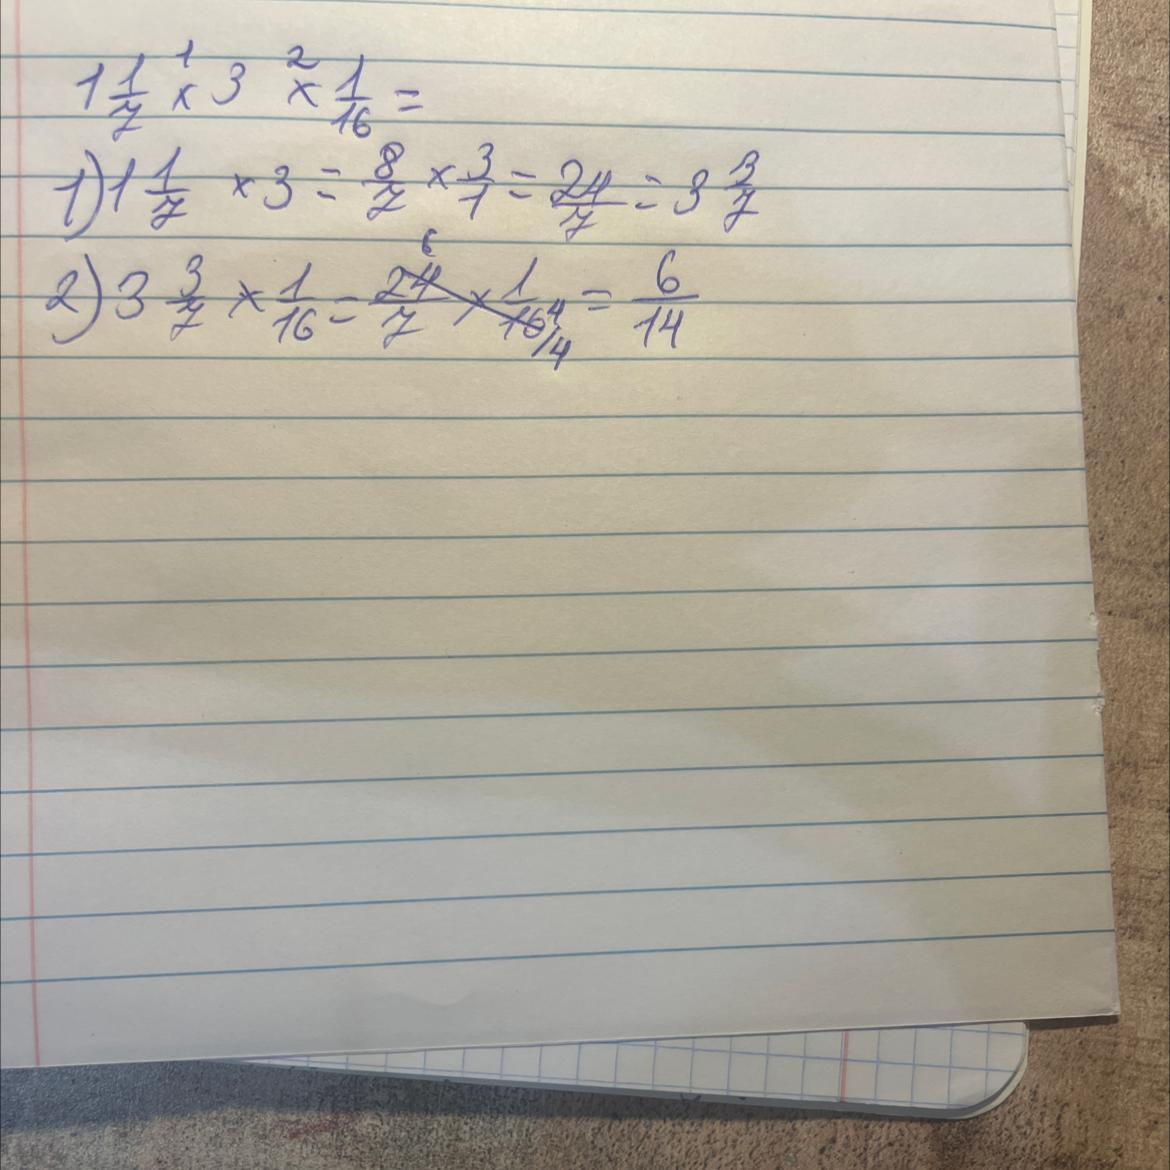 1 1/7 ×¹ 3 ×² 1/16 =
1) 1 1/7 × 3 = 8/7 × 3/1 = 24/7 = 3 3/7
2) 3 3/7 × 1/16 = 24/7 6 × 1/16 4 /4 = 6/14